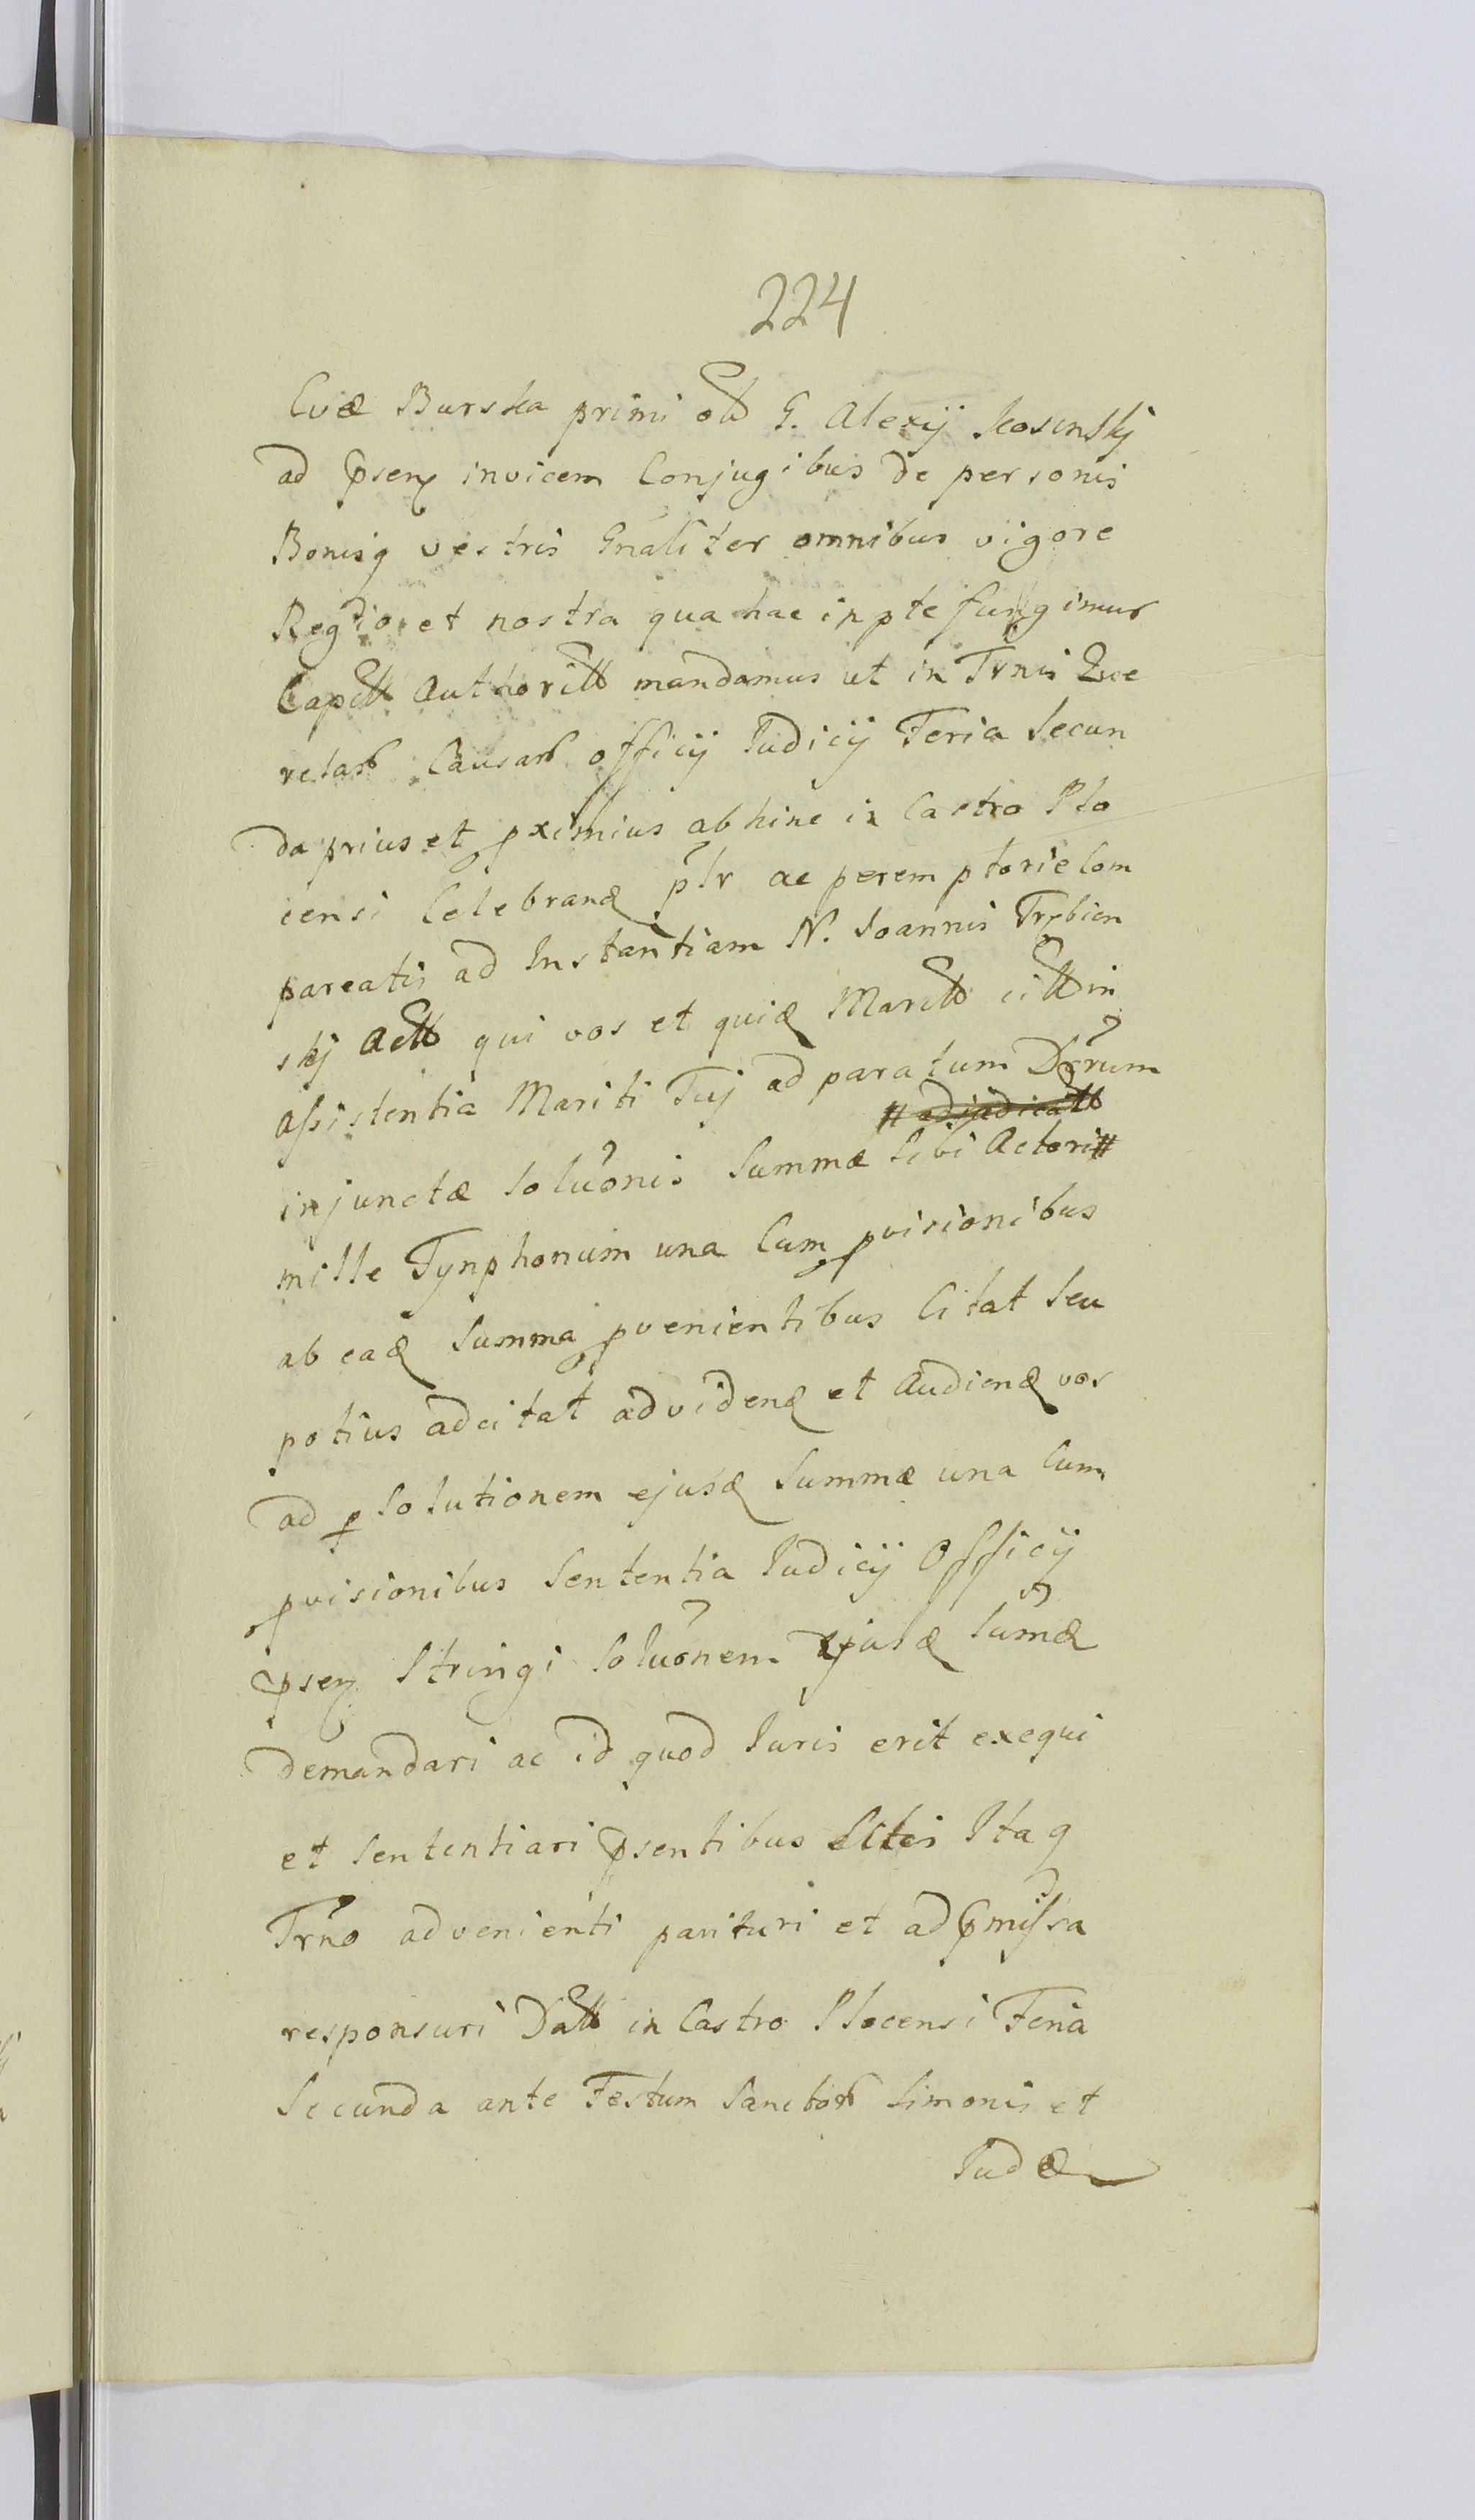 224
Evæ Burska primi olt G. Alexij Kosinskj
ad p̃sens invicem Conjugibus de personis
Bonisq vestris Gnãliter omnibus vigore
Regio et nostra qua hac in pte fungimur
Capitt Authoritt mandamus ut in Trnis Que
relarũ Causarũ officij Iudicij Feria Secun
da prius et pximius abhinc in Castro Plo
censi Celebrand pltr ac peremptorie Com
pareatis ad Instantiam N. Joannis Trębien
skj Actt qui vos et quid Maritt citt in
assistentia Mariti Tuj ad paratum Dẽrum
injunctæ Soluõnis Summæ Sibi Actori # # adjudicatt
mille Tynphonum una Cum pvisionibus
ab ead Summa pvenientibus Citat Seu
potius adcitat ad vidend et Audiend vos
ad p solutionem ejusd Summæ una Cum
pvisionibus Sententia Iudicij Officij
p̃sens Stringi Soluõnem ejusd Sum̃æ
demandari ac id quod Iuris erit exequi
et Sententiari p̃sentibus Sitis Itaq
Trño advenienti parituri et ad p̃missa
responsuri Datt in Castro Plocensi Feria
Secunda ante Festum Sanctorũ Simonis et
Iudæ